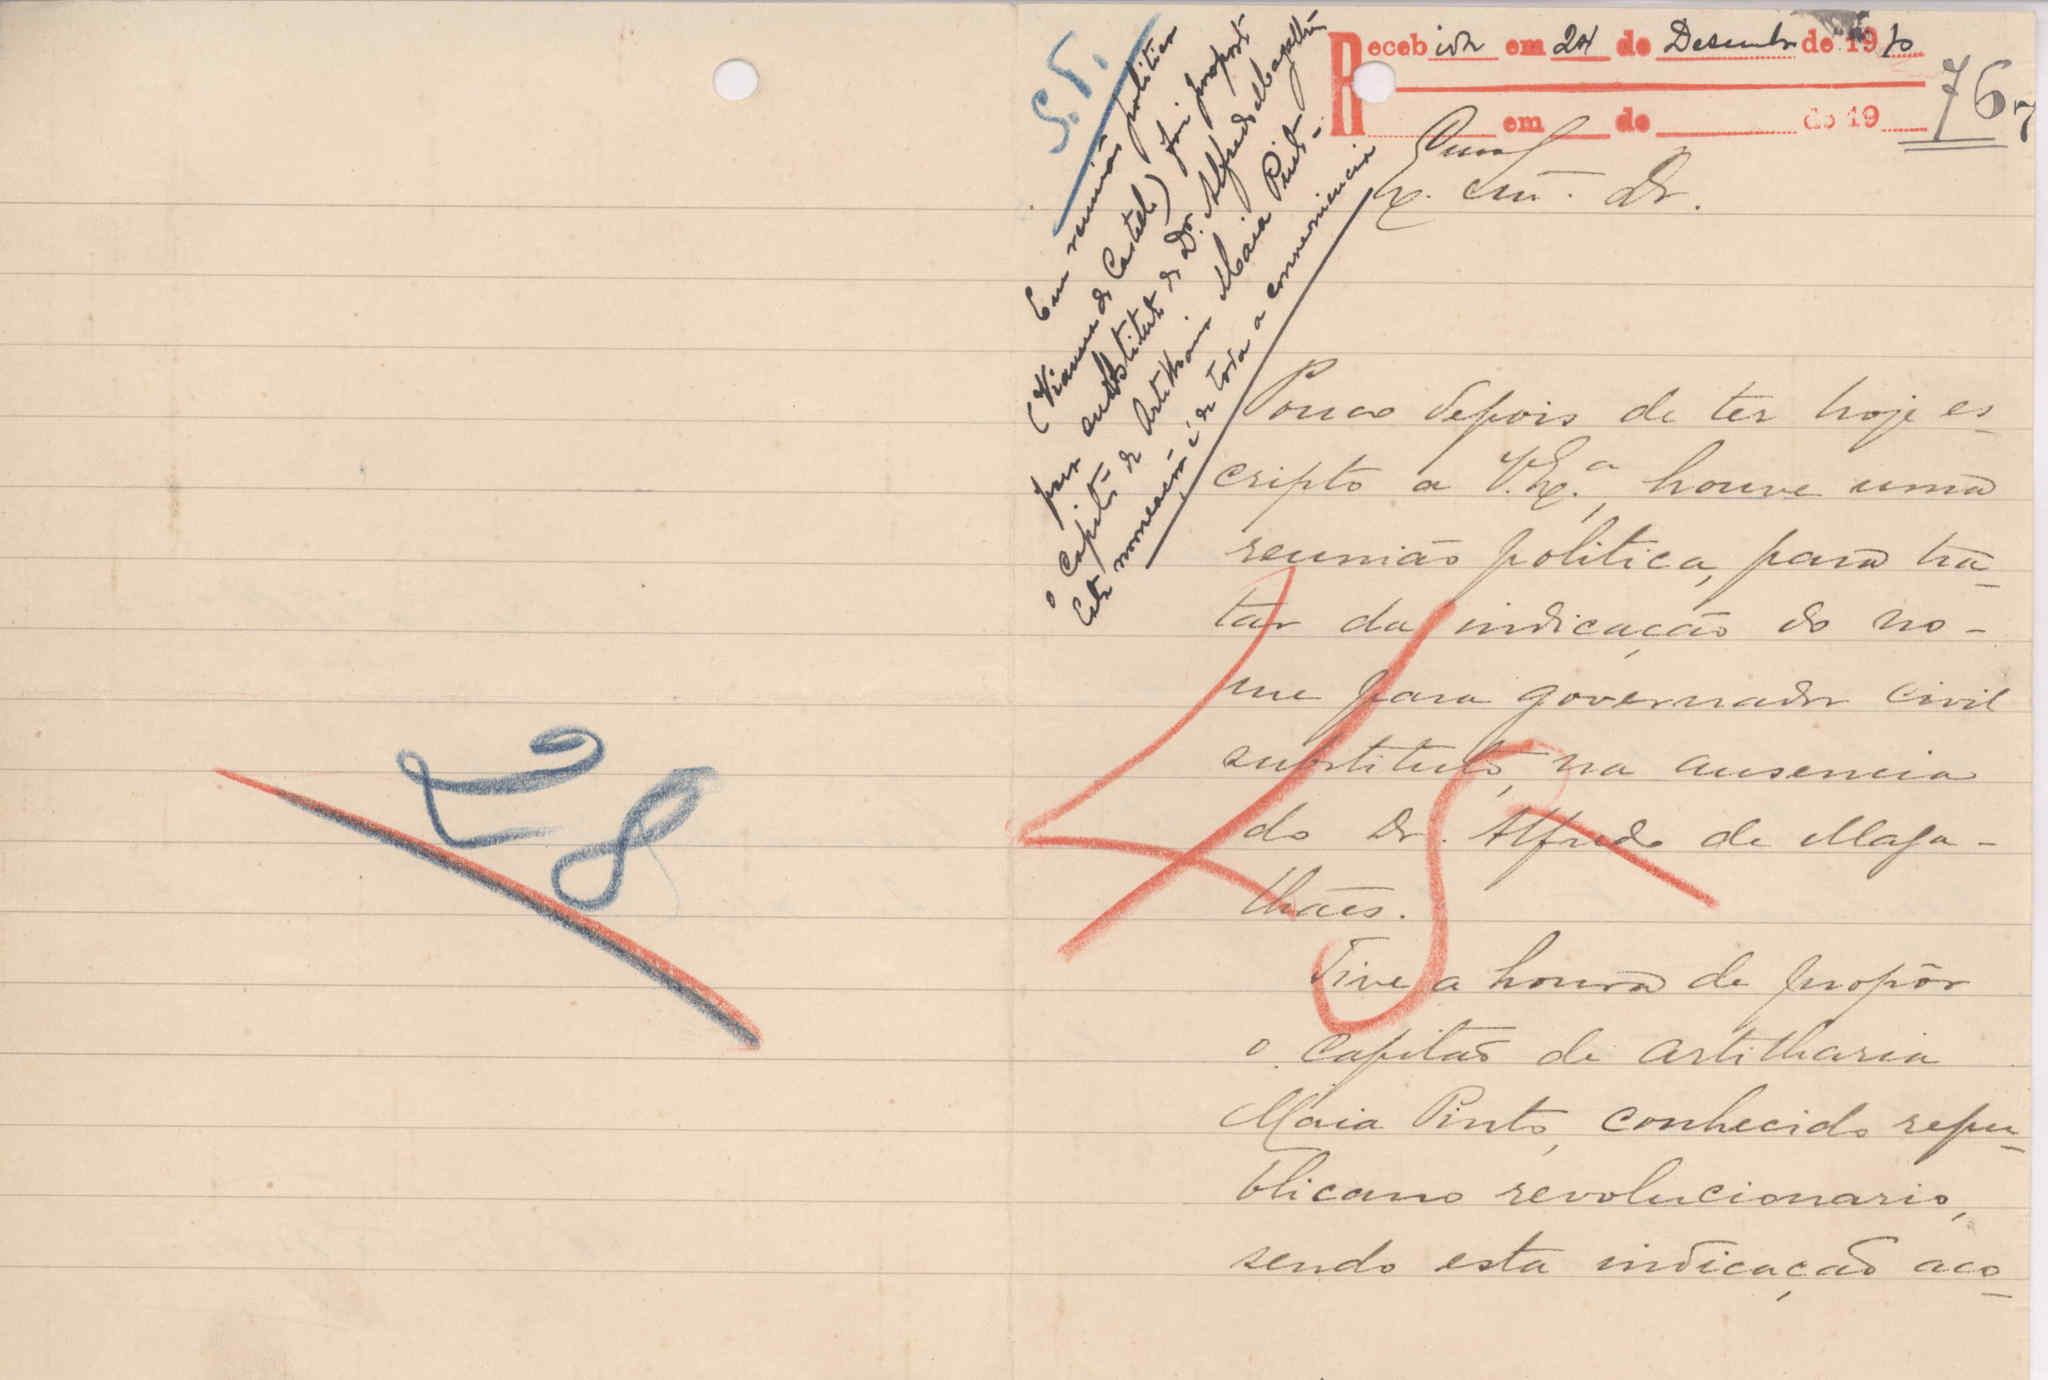 Recebida em 24 de Desembro de 1910
R em de de 19
767
S. T.
Em reunião politica
(Vianna do Castelo) foi proposto
para substituto do Dr. Alfredo Magalhães
o Capitão de Artilharia Maia Pinto -
Esta nomeação é de toda a conveniencia
Exmo
Sr. Dr.
Pouco depois de ter hoje es-
cripto a V. Ex.ª, houve uma
reunião politica, para tra-
tar da indicação do no-
me para governador civil
substituto, na ausencia
do Dr. Alfredo de Maga-
lhães.
Tive a honra de propôr
o capitão de artilharia
Maia Pinto, conhecido repu-
blicano revolucionario,
sendo esta indicação aco-
28
45